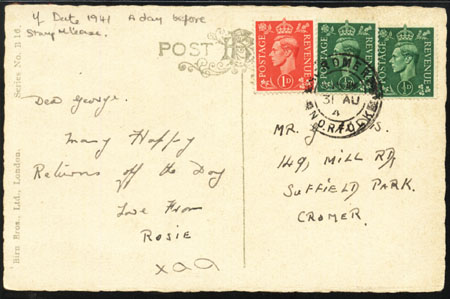 Date 1941 A day before
Stamp release.
POST
Series No. B 16.
Birn Bros., Ltd., London.
POSTAGE REVENUE
1D
POSTAGE REVENUE
POSTAGE REVENUE
CROMER
31 AU
4
NORFOLK
Dear George.
Many Happy
Returns of the Day
Love From
Rosie
MR. J S.
149, MILL RD,
SUFFIELD PARK.
CROMER.